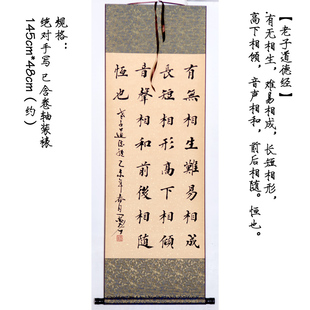 【老子道德经】
.有无相生,难易相成,长短相形,
高下相倾,音声相和,前后相随。恒也。
有無相生難易相成
長短相形高下相傾
音聲相和前後相隨
恒也
规格:
绝对手写 已含卷轴装裱
145cm*48cm(约)